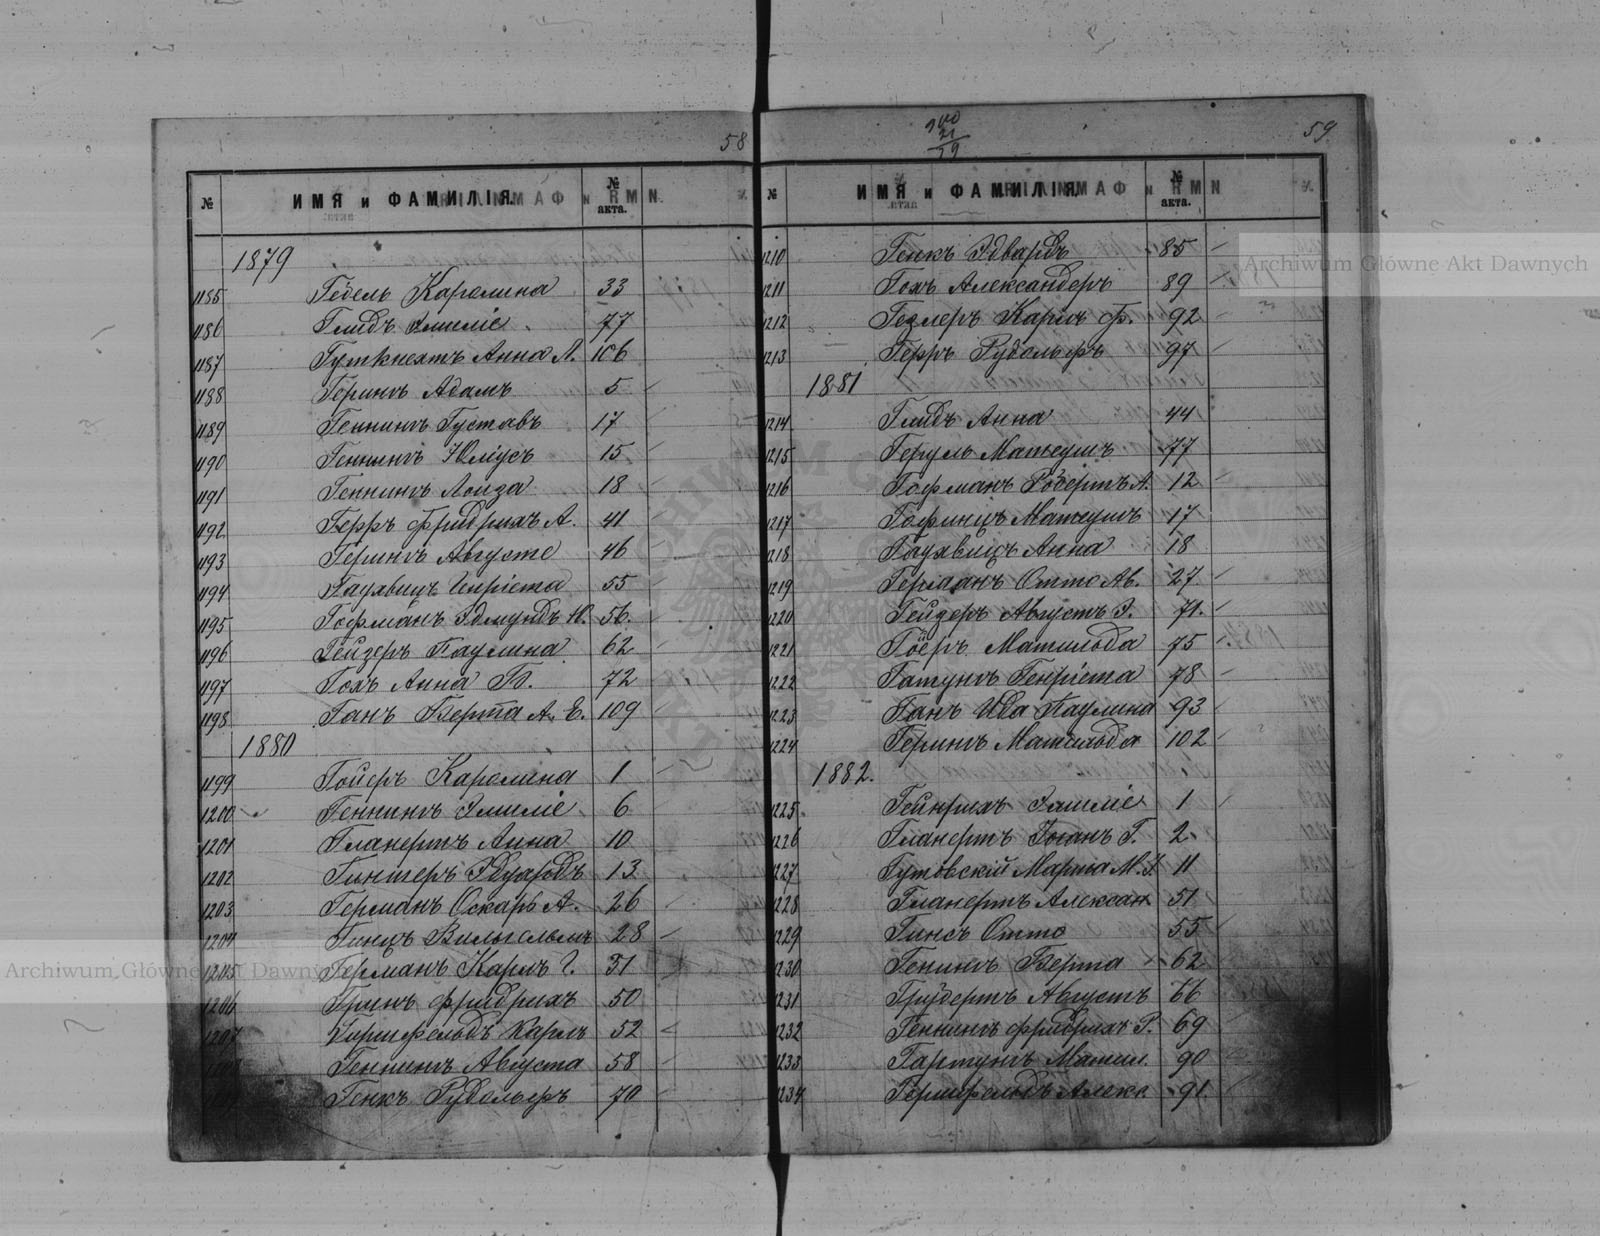 58
№ ИМЯ и ФАМИЛІЯ. № акта.
1879
1185 Гебель Каролина 33
1186 Глидъ Эмиліе 77
1187 Гуткнехтъ Анна Л. 106
1188 Герингъ Адамъ 5
1189 Геннингъ Густавъ 17
1190 Геннингъ Юліусъ 15
1191 Геннингъ Лоиза 18
1192 Герръ Фридрихъ А. 41
1193 Герингъ Августе 46
1194 Гаухвицъ Генріета 55
1195 Гофманъ Эдмундъ Ю. 56.
1196 Гейзеръ Паулина 62
1197 Гохъ Анна Б. 72
1198 Ганъ Берта А. Е. 109
1880
1199 Гойеръ Каролина 1
1200 Геннингъ Эмиліе 6
1201 Гланертъ Анна 10
1202 Гинтеръ Эдуардъ 13
1203 Германъ Оскаръ А. 26
1204 Гинцъ Вильгельмъ 28
1205 Германъ Карлъ Г. 31
1206 Гринъ Фридрихъ 50
1207 Гиршфельдъ Карлъ 52
Геннингъ Августа 58
Генкъ Рудольфъ 70
900
21
79
59
№ ИМЯ и ФАМИЛІЯ. № акта.
1210 Генкъ Эдвардъ 85
1211 Гохъ Александеръ 89
1212 Гезлеръ Карлъ Ф. 92
1213 Герръ Рудольфъ 97
1881
1214 Глидъ Анна 44
1215 Геруль Матеушъ 77
1216 Гофманъ Робертъ А. 12
1217 Гофинцъ Матеушъ 17
1218 Гаухвицъ Анна 18
1219 Германъ Отто Ав. 27
1220 Гейзеръ Августъ Э. 71.
1221 Гоеръ Матильда 75
1222 Гатунгъ Генріета 78
1223 Ганъ Ида Паулина 93
1224 Герингъ Матильда 102
1882.
1225 Гейнрихъ Эмиліе 1
1226 Гланертъ Іоганъ Г. 2
1227 Гутовскій Марта М. А 11
1228 Гланертъ Алексан 51
1229 Гинсъ Отто 55
1230 Генингъ Берта 62
1231 Грубертъ Августъ 66
1232 Геннингъ Фридрихъ Р. 69
1233 Гартунгъ Матил. 90
1234 Гершфельдъ Алекс. 91.
Archiwum Główne Akt Dawnych
Archiwum Główne Akt Dawnych